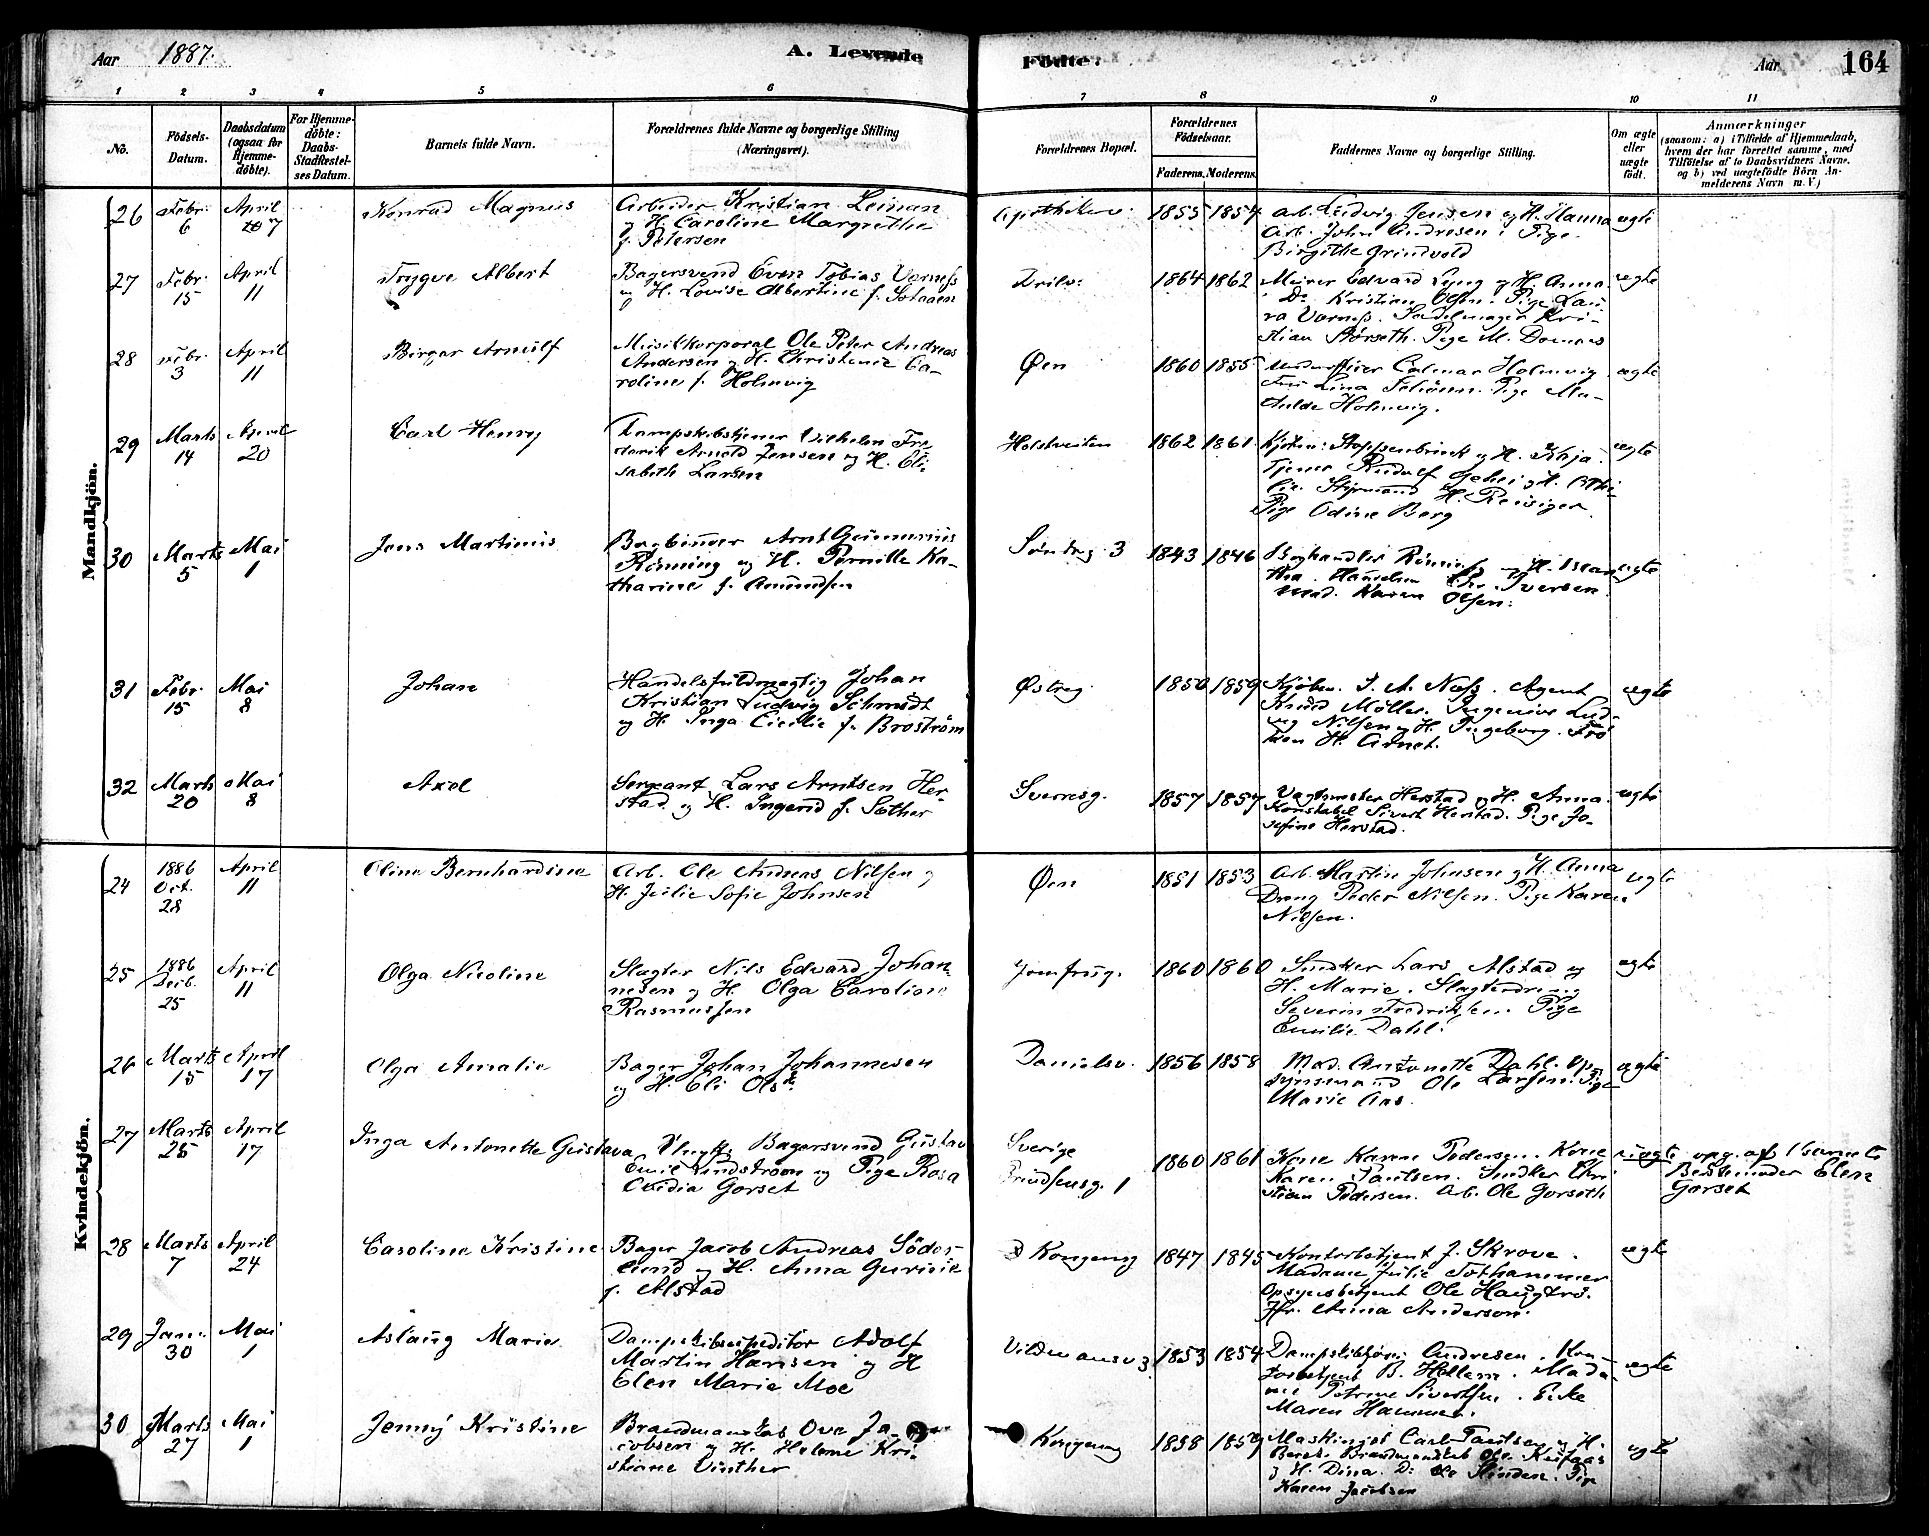 Aar 1887. A. Levende Födte. Aar 164
1 2 3 4 5 6 7 8 9 10 11
No. Födsels-Datum. Daabsdatum (ogsaa for Hjemmedöbte). For Hjemmedöbte: Daabs-Stadfæstelses Datum. Barnets fulde Navn. Forældrenes fulde Navne og borgerlige Stilling (Næringsvei). Forældrenes Bopæl. Forældrenes Födselsaar. Faderens. Moderens. Faddernes Navne og borgerlige Stilling. Om ægte eller uægte födt. Anmærkninger (saasom: a) i Tilfælde af Hjemmedaab, hvem der har forrettet samme, med Tilföielse af to Daabsvidners Navne, og b) ved uægtefödte Börn Anmelderens Navn m. V.)
Mandkjön.
26 Febr. 6 April 7 Konrad Magnus
Arbeider Kristian Leman
og H. Caroline Margrethe
f. Petersen
1855 1854
Arb. Ludvig Jensen og H. Hanna
Arb. John Andresen. Pige
Birgithe Grindvold
ægte
27 Febr. 15 April 11 Trygve Albert
Bagersvend Even Tobias Værness
og H. Lovise Albertine f. Solaaen
1864 1862
Murer Edvard Lyng og H. Anna
Do Kristian Olsen. Pige Lau
ra Værness. Sadelmager Kri-
stian Størseth. Pige M. Doenæs
ægte
28 Febr. 3 April 11 Birger Arnulf
Musikkorporal Ole Peter Andreas
Andersen og H. Christence Ca-
roline f. Holmvig
Øen 1860 1855
Underofficer Calmar Holmvig
Frk Lina Schönn. Pige Ma-
thilde Holmvig.
ægte
29 Marts 14 April 20 Carl Henry
Dampskibstjener Wilhelm Fre
derik Arnold Jensen og H. Eli-
sabeth Larsen
Holstveiten 1862 1861
Kjøbm: Stoppenbrink og H. Khaja
Tjener Rudolf og H. Othi-
lie. Styrmand H. Reisiger.
Pige Odine Berg
ægte
30 Marts 5 Mai 1 Jens Martinus
Bogbinder Arnt Gunnerius
Rönning og H. Pernille Ka-
tharine f. Amundsen
Søndreg. 3 1843 1846
Boghandler Rönning og H. Mar
tha. Handelsm. Chr. Iversen
Mad. Karen Olsen.
ægte
31 Febr. 15 Mai 8 Johan
Handelsfuldmægtig Johan
Kristian Ludvig Schmidt
og H. Inga Cicilie f. Broström
Østreg. 1850 1859
Kjøbm. J. A. Næss. Agent
Knud Möller. Ingeniør Lud-
vig Nilsen og H. Ingeborg. Frö
ken H. Arnet.
ægte
32 Marts 20 Mai 8 Axel
Sergeant Lars Arntsen Her-
stad og H. Ingeed f. Sæther
Sverresg. 1857 1857
Vagtmester Herstad og H. Anna.
Konstabel Sivert Herstad. Pige Jo-
sefine Herstad.
ægte
Kvindekjön.
24 1886 Oct. 28 April 11 Oline Bernhardine
Arb. Ole Andreas Nilsen og
H. Julie Sofie Johnsen
Øen 1851 1853
Arb. Martin Johnsen og H. Anna
Dreng Peder Nilsen. Pige Karen
Nilsen.
ægte
25 1886 Decb. 25 April 11 Olga Nicoline
Slagter Nils Edvard Johan
nesen og H. Olga Caroline
Rasmussen
Jomfrug. 1860 1860
Snekker Lars Alstad og
H. Marie. Slagterdreng
Severin Fredriksen. Pige
Emilie Dahl.
ægte
26 Marts 15 April 17 Olga Amalie
Bager Johan Johannesen
og H. Eli Olsd.
Danielsv. 1856 1858
Mad. Antonette Dahl. Op-
synsmand Ole Larsen. Pige
Marie Aas.
ægte
27 Marts 25 April 17 Inga Antonette Gustava
Ungk. Bagersvend Gustav
Emil Lindström og Pige Rosa
Ovidia Gorset
Sverige
Prindsensg. 1 1860 1861
Kone Karen Pedersen. Kone
Karen Paulsen. Snedker Chri
stian Pedersen. Arb. Ole Gorseth
uægte opg. af Barnets
Bedstemoder Elen
Gorset
28 Marts 7 April 24 Caroline Kristine
Bager Jacob Andreas Söder-
lund og H. Anna Gurine
f. Alstad
Kongensg 1847 1845
Kontorbetjent J. Skrove.
Madame Julie Tothammer
Opsynsbetjent Ole Haugtrö.
Jfr. Anna Anderson.
ægte
29 Jan. 30 Mai 1 Aslaug Marie
Dampskibsexpeditör Adolf
Martin Hansen og H
Elen Marie Moe
Vildmansv 3 1853 1854
Dampskibsförer Andresen. Kon-
torbetjent B. Hollem. Mada-
me Petrine Sivertsen. Enke
Maren Hammer.
ægte
30 Marts 27 Mai 1 Jenny Kristine
Brandmandskab Ove Ja-
cobsen og H. Helene Kri-
stiane Vinther
Kongensg 1858 1859
Maskinist Carl Paulsen og H.
Beret. Brandmandskab Ole
og H. Dina. Do Ole Slinden. Pige
Karen Jacobsen
ægte